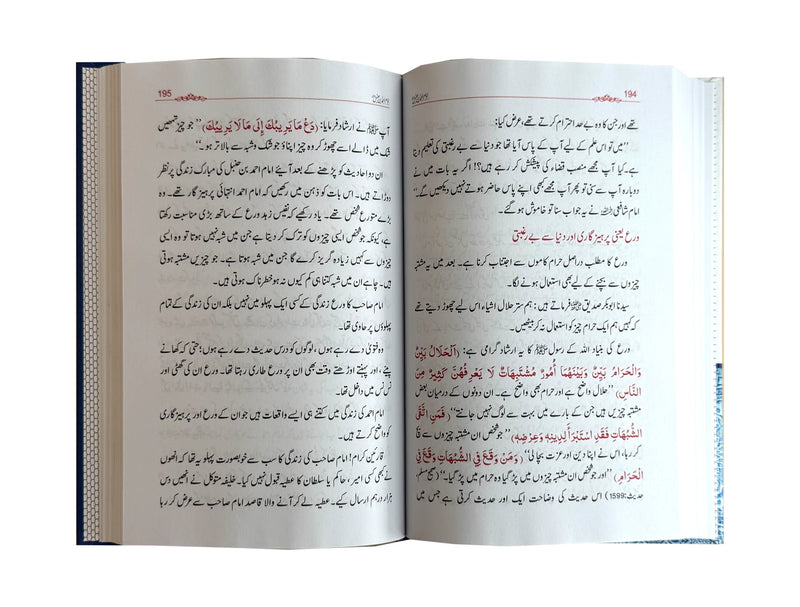 194
تھے اور جن کا وہ بے حد احترام کرتے تھے، عرض کیا:
”میں تو اس علم کے لیے آپ کے پاس آیا تھا جو دنیا سے بے رغبتی کی تعلیم دیتا
ہے۔ کیا آپ مجھے منصب قضاء کی پیشکش کر رہے ہیں؟! اگر یہ بات میں نے
دوبارہ آپ سے سنی تو پھر آپ مجھے کبھی اپنے پاس حاضر ہوتے نہیں دیکھیں گے۔“
امام شافعی رحمہ اللہ نے یہ جواب سنا تو خاموش ہو گئے۔
ورع یعنی پرہیز گاری اور دنیا سے بے رغبتی
ورع کا مطلب دراصل حرام کاموں سے اجتناب کرنا ہے۔ بعد میں یہ مشتبہ
چیزوں سے بچنے کے لیے بھی استعمال ہونے لگا۔
سیدنا ابوبکر صدیق رضی اللہ عنہ فرماتے ہیں: ہم ستر حلال اشیاء اس لیے چھوڑ دیتے تھے
کہ کہیں ہم ایک حرام چیز کو استعمال نہ کر بیٹھیں۔
ورع کی بنیاد اللہ کے رسول ﷺ کا یہ ارشاد گرامی ہے: (اَلْحَلَالُ بَيِّنٌ
وَالْحَرَامُ بَيِّنٌ وَبَيْنَهُمَا أُمُورٌ مُشْتَبِهَاتٌ لَا يَعْرِفُهُنَّ كَثِيرٌ مِنَ
النَّاسِ) ”حلال واضح ہے اور حرام بھی واضح ہے۔ ان دونوں کے درمیان بعض
مشتبہ چیزیں ہیں جن کے بارے میں بہت سے لوگ نہیں جانتے“ (فَمَنِ اتَّقَى
الشُّبُهَاتِ فَقَدِ اسْتَبْرَأَ لِدِينِهِ وَعِرْضِهِ) ”جو شخص ان مشتبہ چیزوں سے بچ گیا
اس نے اپنا دین اور عزت بچالی“ (وَمَنْ وَقَعَ فِي الشُّبُهَاتِ وَقَعَ فِي
الْحَرَامِ) ”اور جو شخص ان مشتبہ چیزوں میں پڑ گیا وہ حرام میں پڑ گیا۔“ (صحیح مسلم،
حدیث:1599) اس حدیث کی وضاحت ایک اور حدیث کرتی ہے جس میں
195
آپ ﷺ نے ارشاد فرمایا: (دَعْ مَا يَرِيبُكَ إِلَى مَا لَا يَرِيبُكَ) ”جو چیز تمھیں
شک میں ڈالے اسے چھوڑ کر وہ چیز اپناؤ جو شک و شبہ سے بالاتر ہو۔“
ان دو احادیث کو پڑھنے کے بعد آئیے امام احمد بن حنبل کی مبارک زندگی پر نظر
دوڑاتے ہیں۔ اس بات کو ذہن میں رکھیں کہ امام احمد انتہائی پرہیز گار تھے۔ وہ
بڑے متورع شخص تھے۔ یاد رکھیے کہ نفیس زہد ورع کے ساتھ بڑی مناسبت رکھتا
ہے، کیونکہ جو شخص ایسی چیزوں کو ترک کر دیتا ہے جن میں شبہ نہیں ہوتا تو وہ ایسی
چیزوں سے کہیں زیادہ گریز کرے گا جن میں شبہ ہوتا ہے۔ جو چیزیں مشتبہ ہوتی
ہیں۔ چاہے ان میں شبہ کتنا ہی کم کیوں نہ ہو خطرناک ہوتی ہیں۔
امام صاحب کا ورع زندگی کے کسی ایک پہلو میں نہیں بلکہ ان کی زندگی کے تمام
پہلوؤں پر حاوی تھا۔
وہ فتویٰ دے رہے ہوں، لوگوں کو درس حدیث دے رہے ہوں، حتیٰ کہ کھانے
پینے، اور پہننے اوڑھتے وقت بھی ان پر ورع طاری رہتا تھا۔ ورع ان کی زندگی کی
نس نس میں داخل تھا۔
امام احمد کی زندگی میں کتنے ہی ایسے واقعات ہیں جو ان کے ورع اور پرہیز گاری
کو واضح کرتے ہیں۔
قارئین کرام! امام صاحب کی زندگی کا سب سے خوبصورت پہلو یہ تھا کہ انھوں
نے کبھی کسی امیر، حاکم یا سلطان کا عطیہ قبول نہیں کیا۔ خلیفہ متوکل نے انھیں دس
ہزار درہم ارسال کیے۔ عطیہ لے کر آنے والا قاصد امام صاحب سے عرض کر رہا